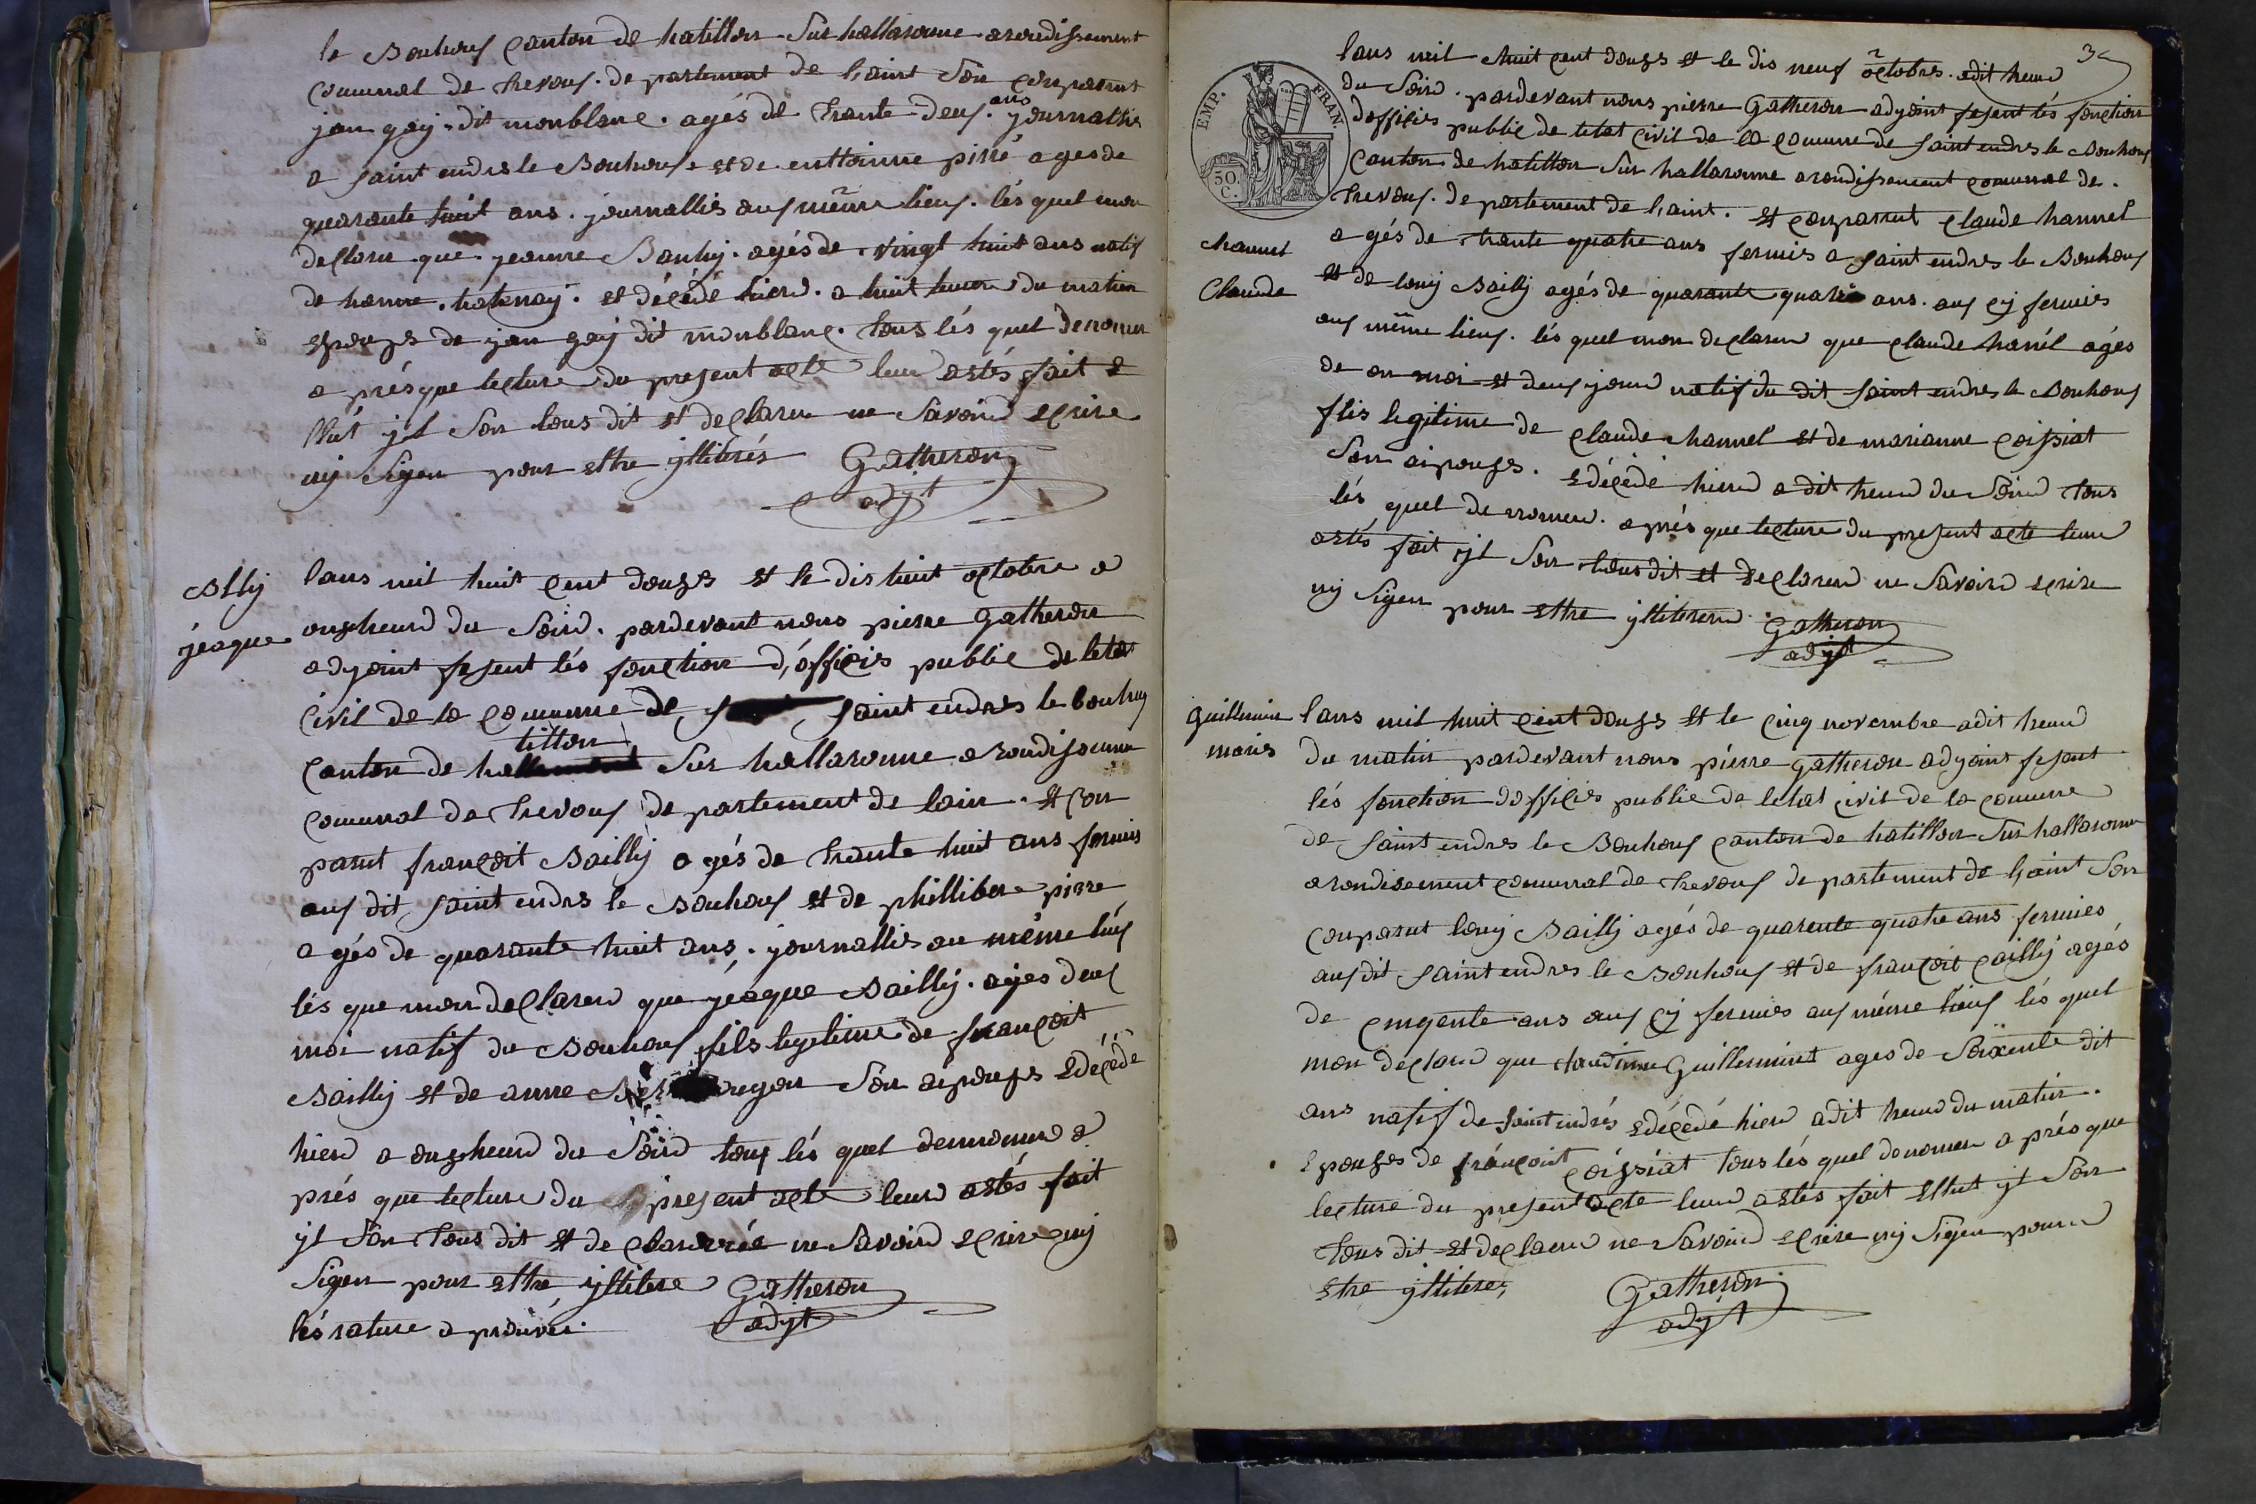 le Bouhouf Canton de hatillon Sur hallaronne arondissement
Comunal de trevouf. de partement de laint Son Conparut
jan gay dit monblanc. agés de trante deuf. ans journallié
a saint endrs le Bouhouf et de enttoinne pirré ages de
quarante huit ans. journalliés auf même lieuf. lés quel mon
declarer que jeanne Bailly. agés de vingt huit ans natif
de hanne. hatenay. et décédé hierd. a huit heure du matin
epouzs de jan gay dit monblanc. tous lés quel denomer
a prés que lecture du present acte leur astés fait e
llut yl Son tous dit et declarer ne Savoird ecrire
nij Signer pour etthe yllitérés Gatheron
adjt
Blly
jéaque
lans mil huit Cent douzs et le dis huit octobre a
onzheurd du Soird. pardevant nous pierre Gatheron
adjoint fesent lés fonction d'officiés public de letat
Civil de la Comunne de saint endres le bouhouf
tillon
Canton de ha Sur hallaronne arondissement
Comunal de trevouf de partement de lain. et Con
parut françoit Bailly agés de trante huit ans fermiés
auf dit saint endrs le Bouhouf et de philliber pirre
agés de quarante huit ans. journalliés au même lieuf
lés que mon declarerd que jéaque Bailly. ages deuf
moi natif du Bouhouf fils legetime de françoit
Bailly et de anne Son aipouzs edécédé
hierd a onzheurd du Soird touf lés quel denomerd a
prés que lecture du present acte leurd astés fait
yl Son tous dit et de clarerés ne Savoird ecrire nij
Signer pour etthe yllitére Gatheron
lés rature a prouvér. adjt
3
EMP. FRAN.
50. C.
lans mil huit Cent douzs et le dis neuf octobres. adit heurd
du Soird. pardevant nous pierre Gatheron adjoint fesent lés fonction
dofficiés public de letat Civil de la Comune de saint endres le Bouhouf
Canton de hatillon Sur hallaronne arondissement comunal de.
trevouf. de partement de laint. et Conparut Claude hannel
agés de trante quatre ans fermiés a saint endres le Bouhouf
channel
Claude
et de louy Bailly agés de quarante quatre ans. auf Cy fermiés
auf même lieuf. lés quel mon declarerd que Claude hanél agés
de on moi et deuf jourd natif du dit saint endres le Bouhouf
flis legitime de Claude hannel et de marianne Coissiat
Son aipouzs. edécédé hierd a dit heurd du Soird tous
lés quel denomerd. aprés que lecture du present acte leurd
astés fait yl Son tous dit et declarerd ne Savoird ecrire
nij Signer pour etthe yllitererd. Gatheron
adjt
guillemin
mariés
lans mil huit Cent douzs et le Cinq novembre adit heurd
du matin pardevant nous piérre gatheron adjoint fesent
lés fonction dofficiés public de letat Civil de la Comune
de saint endres le Bouhouf Canton de hatillon Sur hallaronne
arondisement comunal de trevouf de partement de laint Son
Conparut louy Bailly agés de quarente quatre ans fermiés
auf dit saint endres le Bouhouf et de françoit Cailly agés
de Cinqente ans auf Cy fermiés auf même lieuf lés quel
mon declard que claudinne Guillemint ages de Soixente dit
ans natif de saint endrés edécédé hierd adit heurd du matin.
epouzes de françoit Coissiat tous lés quel denomer a prés que
lecture du present acte leurd astés fait ellut yl Son
tous dit et declarerd ne Savoird ecrire nij Signer pourd
etre yllitére, Gatheron
adjt